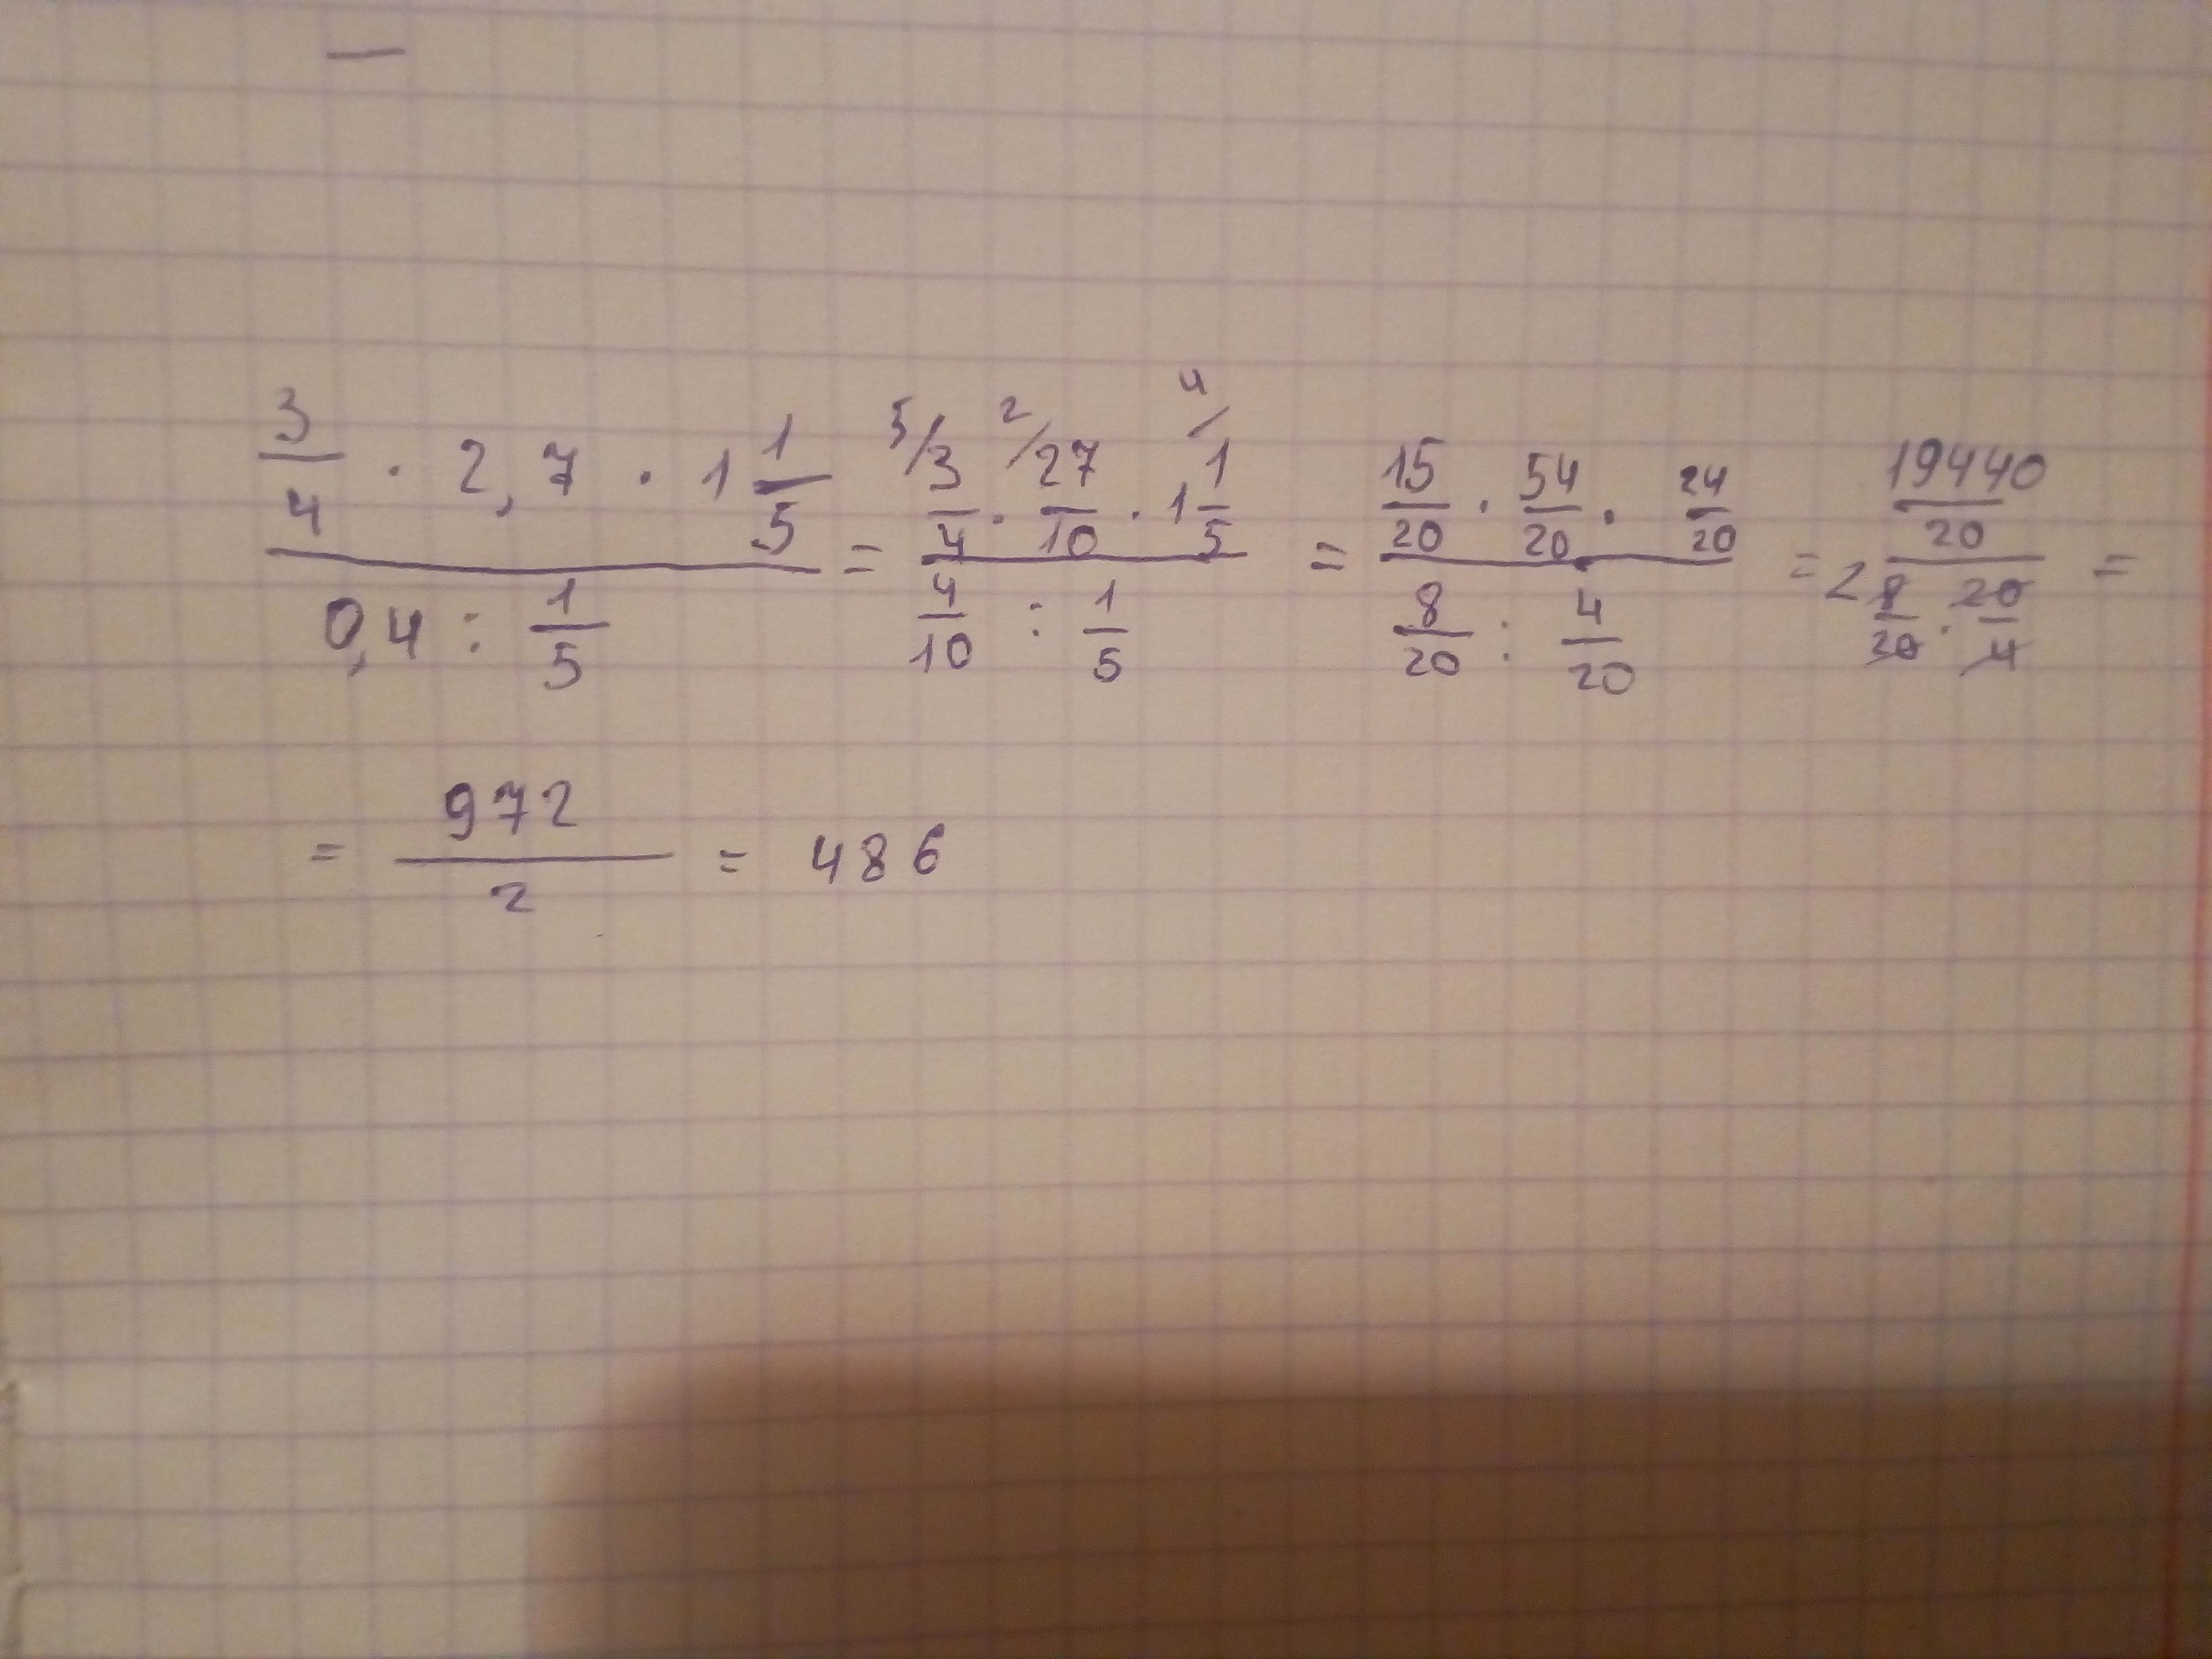 (3/4 · 2,7 · 1 1/5) / (0,4 : 1/5) = (5/ 3/4 · 2/ 27/10 · 4/ 1 1/5) / (4/10 : 1/5) = (15/20 · 54/20 · 24/20) / (8/20 : 4/20) = (19440/20) / (2 8/20 · 20/4) =
= 972/2 = 486